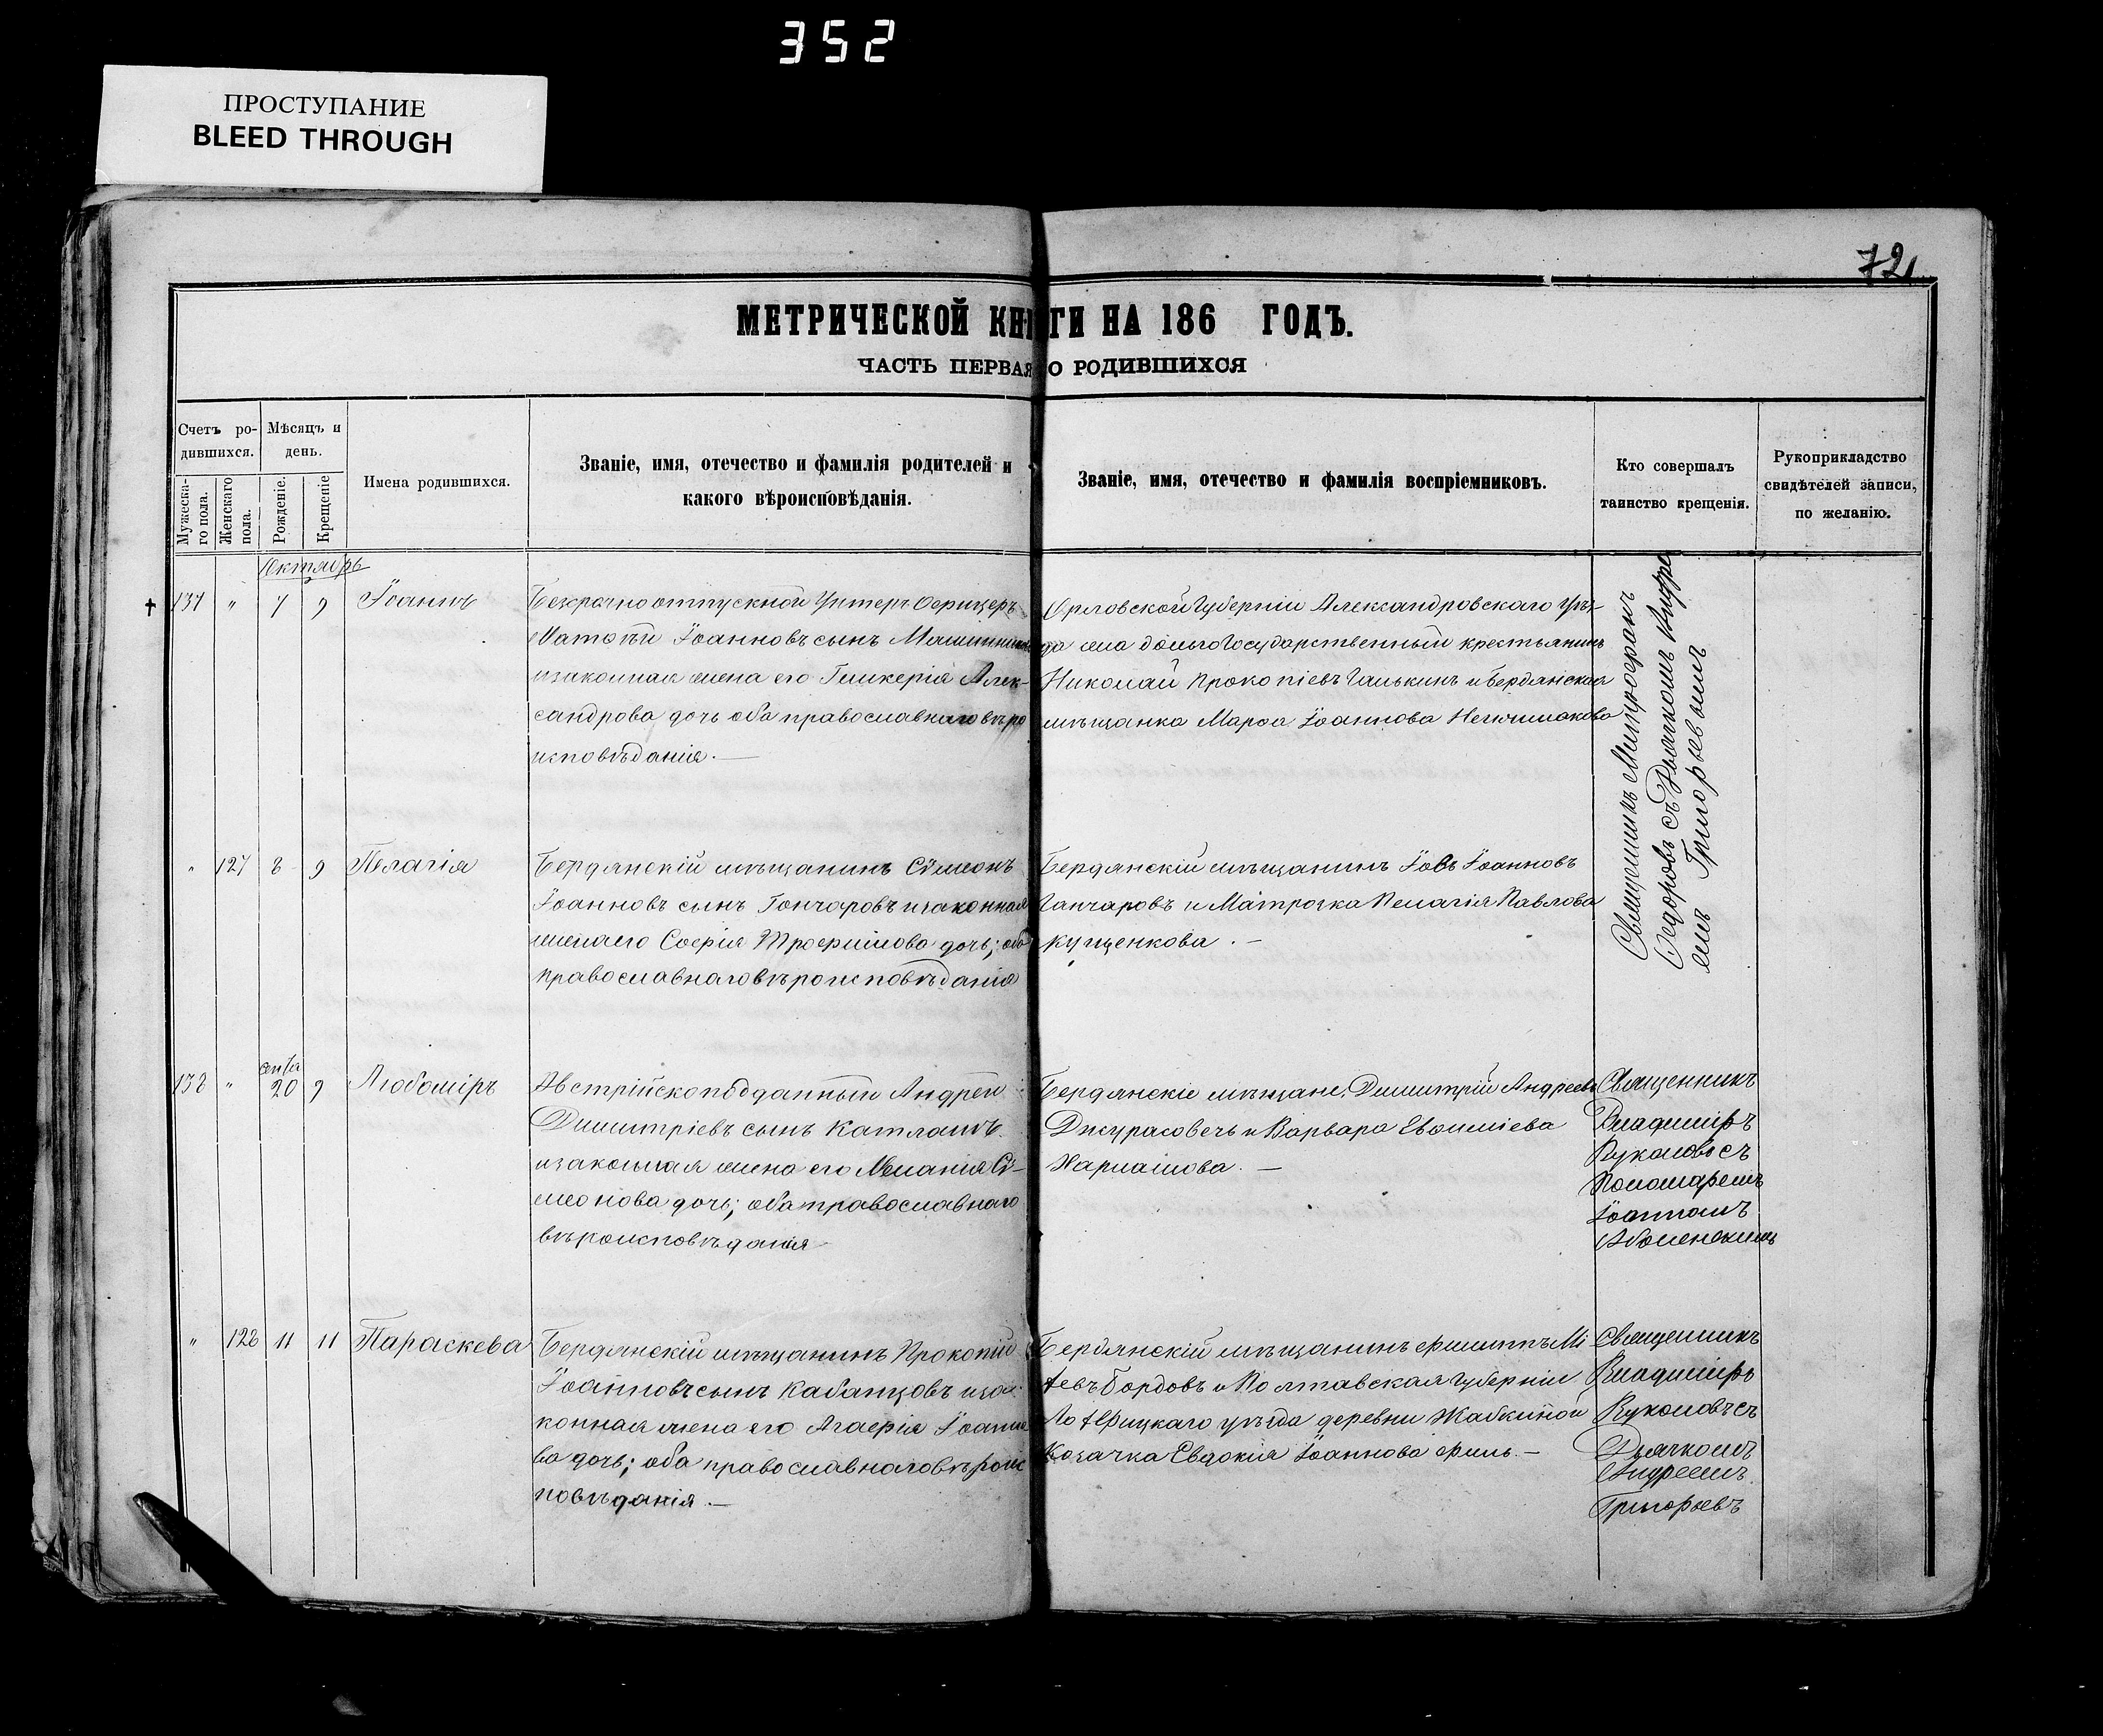 352
ПРОСТУПАНИЕ
BLEED THROUGH
72
МЕТРИЧЕСКОЙ КНИГИ НА 186 ГОДЪ.
ЧАСТЬ ПЕРВАЯ О РОДИВШИХСЯ
Счетъ ро-
дившихся.
Мужеска-
го пола.
Женскаго
пола.
Мѣсяцъ и
день.
Рожденіе.
Крещеніе
Имена родившихся.
Званіе, имя, отечество и фамилія родителей и
какого вѣроисповѣданія.
Званіе, имя, отечество и фамилія воспріемниковъ.
Кто совершалъ
таинство крещенія.
Рукоприкладство
свидѣтелей записи,
по желанію.
Октябрь
137 " 7 9 Іоаннъ
Безсрочноотпускной Унтеръ Офицеръ
Іоанновъ сынъ
изаконная жена его Гликерія Алек-
сандрова дочь оба православнаго вѣро
исповѣданія. —
Орловской Губерніи Александровскаго Уѣз-
да Государственный крестьянинъ
Николай Прокопіевъ Галькинъ и Бердянская
мѣщанка Марѳа Іоаннова
Священникъ Митрофанъ
Ѳедоровъ съ Дьячкомъ Андре
емъ Григорьевымъ
" 127 8 9 Пелагія
Бердянскій мѣщанинъ Сѵмеонъ
Іоанновъ сынъ Гончаровъ изаконная
женаего Софія Трофимова дочь; оба
православнаго вѣроисповѣданія
Бердянскій мѣщанинъ Іовъ Іоанновъ
Ганчаровъ и Матрозка Пелагія Павлова
Кущенкова. —
138 " 20 9 Любоміръ
Австрійскоподданный Андрей
Димитріевъ сынъ
изаконная жена его Меланія Сі-
меонова дочь; оба православнаго
вѣроисповѣданія
Бердянскіе мѣщане, Димитрій Андреевъ
Джурасовечь и Варвара Евѳиміева
Священникъ
Владиміръ
Пономаремъ
Іоанномъ
" 128 11 11 Параскева
Бердянскій мѣщанинъ Прокопій
Іоанновъ сынъ Кабанцовъ иза-
конная жена его Агафія Іоанно
ва дочь; оба православнаго вѣроис
повѣданія. —
Бердянскій мѣщанинъ Филиппъ
Бордовъ и Полтавская Губерніи
уѣзда деревни Жабкиной
Козачка Евдокія Іоаннова Филь. —
Священникъ
Владиміръ
Дьячкомъ
Андреемъ
Григорьевъ